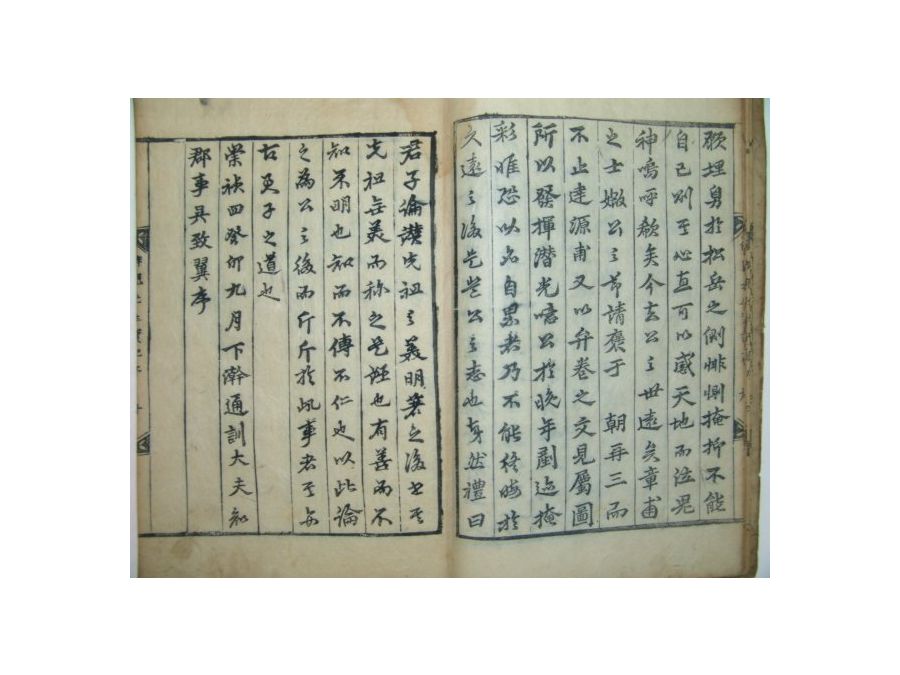 願埋舅於松岳之側悱惻掩抑不能
自已則至心直可以感天地而泣鬼
神嗚呼欷矣今去公之世遠矣章甫
之士媺公之苦請褒于　朝再三而
不止達源甫又以弁卷之文見屬圖
所以發揮潛光噫公於晩年剷迹掩
彩唯恐以名自累者乃不能終晦於
久遠之後豈公之志也哉然禮曰
君子論譔先祖之美明著之後世其
先祖無美而稱之是誣也有善而不
知不明也知而不傳不仁也以此論
之為公之後而斤斤於此事者其亦
古君子之道也
崇禎四癸卯九月下澣通訓大夫知
郡事具致翼序